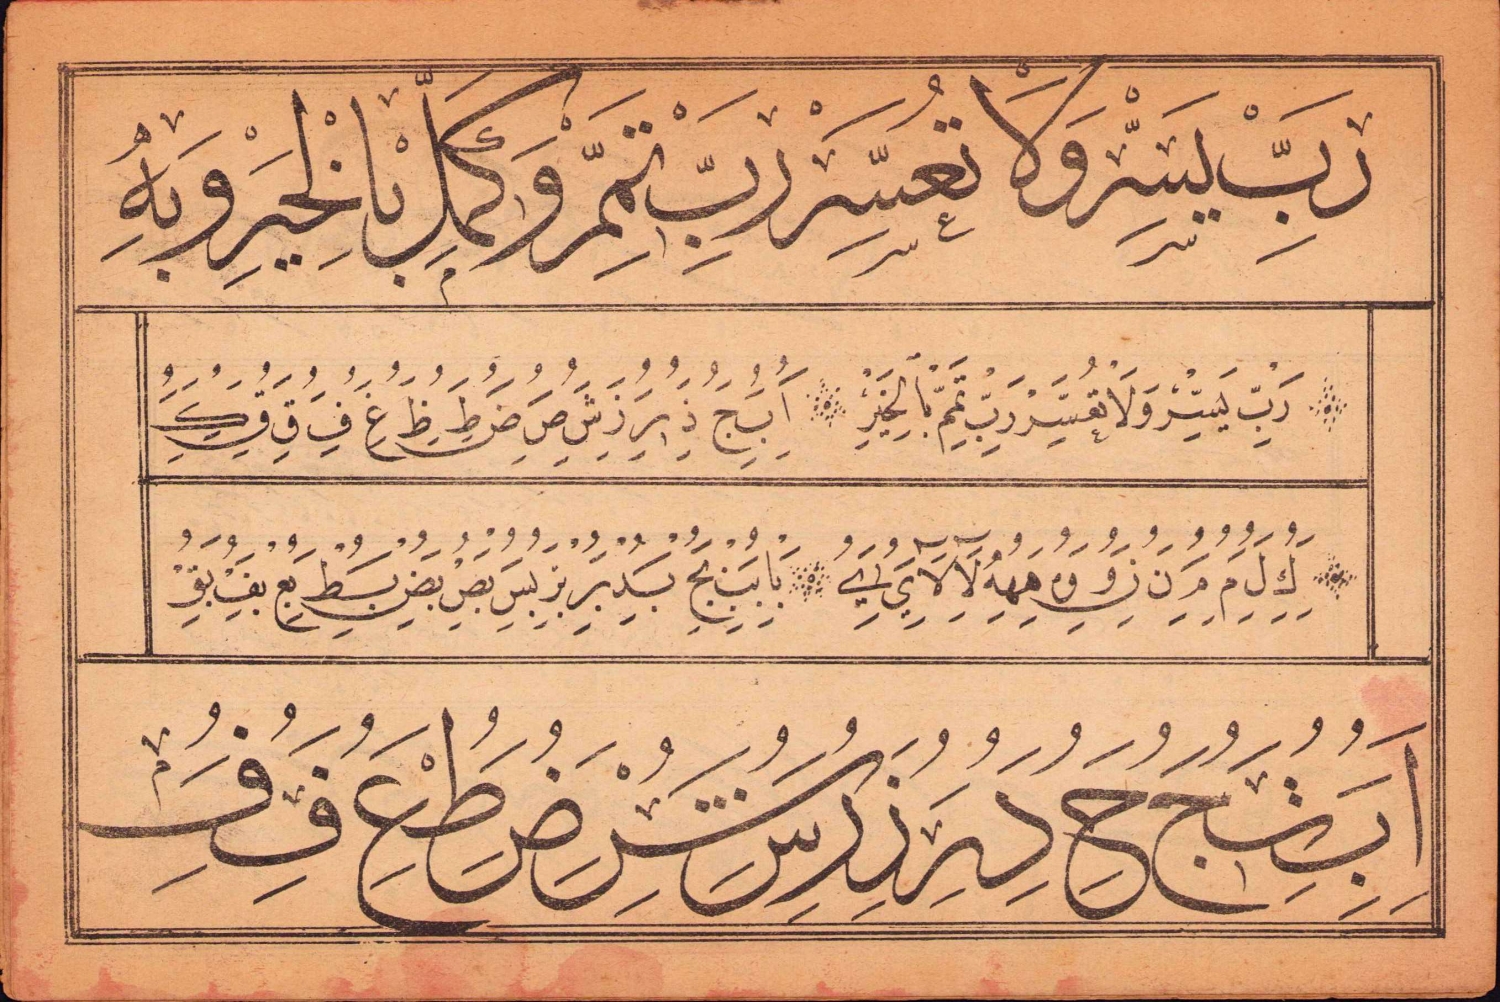 رَبِّ يَسِّرْ وَلَا تُعَسِّرْ رَبِّ تَمِّمْ وَكَمِّلْ بِالْخَيْرِ وَبِهِ
رَبِّ يَسِّرْ وَلَا تُعَسِّرْ رَبِّ تَمِّمْ بِالْخَيْرِ ا ب ج د ر ز ش ص ض ط ظ غ ف ق ق ك
ك ل م م ن ن و و ه ه لا لا ي ي با بب بج بد بر بز بس بص بض بط بع بف بق
ا ب ث ج ح د ر ز ر س ش ض ط ع ق ف